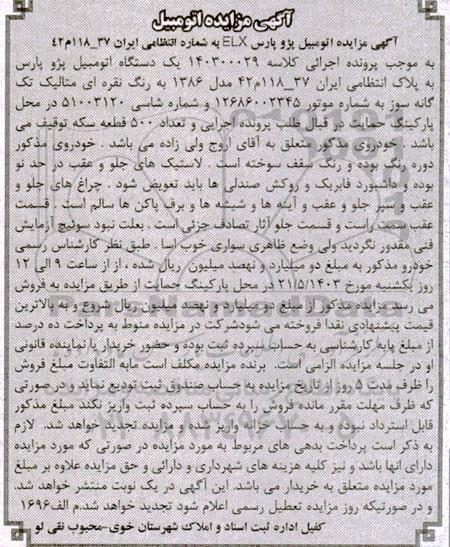 آگهی مزایده اتومبیل
آگهی مزایده اتومبیل پژو پارس ELX به شماره انتظامی ایران 37_118م42
به موجب پرونده اجرائی کلاسه 140300029 یک دستگاه اتومبیل پژو پارس
به پلاک انتظامی ایران 37_118م42 مدل 1386 به رنگ نقره ای متالیک تک
گانه سوز به شماره موتور 12686002345 و شماره شاسی 51003120 در محل
پارکینگ در قبال طلب پرونده اجرایی و تعداد 500 قطعه سکه توقیف می
باشد . خودروی مذکور متعلق به آقای اروج ولی زاده می باشد . خودروی مذکور
دوره رنگ بوده و رنگ سقف سوخته است . لاستیک های جلو و عقب در حد نو
بوده و داشبورد فابریک و روکش صندلی ها باید تعویض شود . چراغ های جلو و
عقب و سپر جلو و عقب و آینه ها و شیشه ها و برف پاکن ها سالم است . قسمت
عقب است و قسمت جلو آثار تصادف جزئی است . بعلت نبود سوئیچ آزمایش
فنی مقدور نگردید ولی وضع ظاهری سواری خوب اسا . طبق نظر کارشناس رسمی
خودرو مذکور به مبلغ دو میلیارد و نهصد میلیون ریال شده ، از از ساعت 9 الی 12
روز یکشنبه مورخ 21/5/1403 در محل پارکینگ حمایت از طریق مزایده به فروش
می رسد. مزایده مذکور از مبلغ دو میلیارد و نهصد میلیون ریال شروع و به بالاترین
قیمت پیشنهادی نقدا فروخته می شودشرکت در مزایده منوط به پرداخت ده درصد
از مبلغ پایه کارشناسی به حساب سپرده ثبت بوده و حضور خریدار یا نماینده قانونی
او در جلسه مزایده الزامی است. برنده مزایده مکلف است مابه التفاوت مبلغ فروش
را ظرف مدت 5 روز از تاریخ مزایده به حساب صندوق ثبت تودیع نماید و در صورتی
که ظرف مهلت مقرر مانده فروش را به حساب سپرده ثبت واریز نکند مبلغ مذکور
قابل استرداد نبوده و به حساب خزانه واریز شده و مزایده تجدید خواهد شد. لازم
به ذکر است پرداخت بدهی های مربوط به مورد مزایده در صورتی که مورد مزایده
دارای انها باشد و نیز کلیه هزینه های شهرداری و دارائی و حق مزایده علاوه بر مبلغ
مورد مزایده متعلق به خریدار می باشد. این آگهی در یک نوبت منتشر خواهد شد.
و در صورتیکه روز مزایده تعطیل رسمی اعلام شود تجدید خواهد شد.م الف1696
کفیل اداره ثبت اسناد و املاک شهرستان خوی-محبوب نقی لو